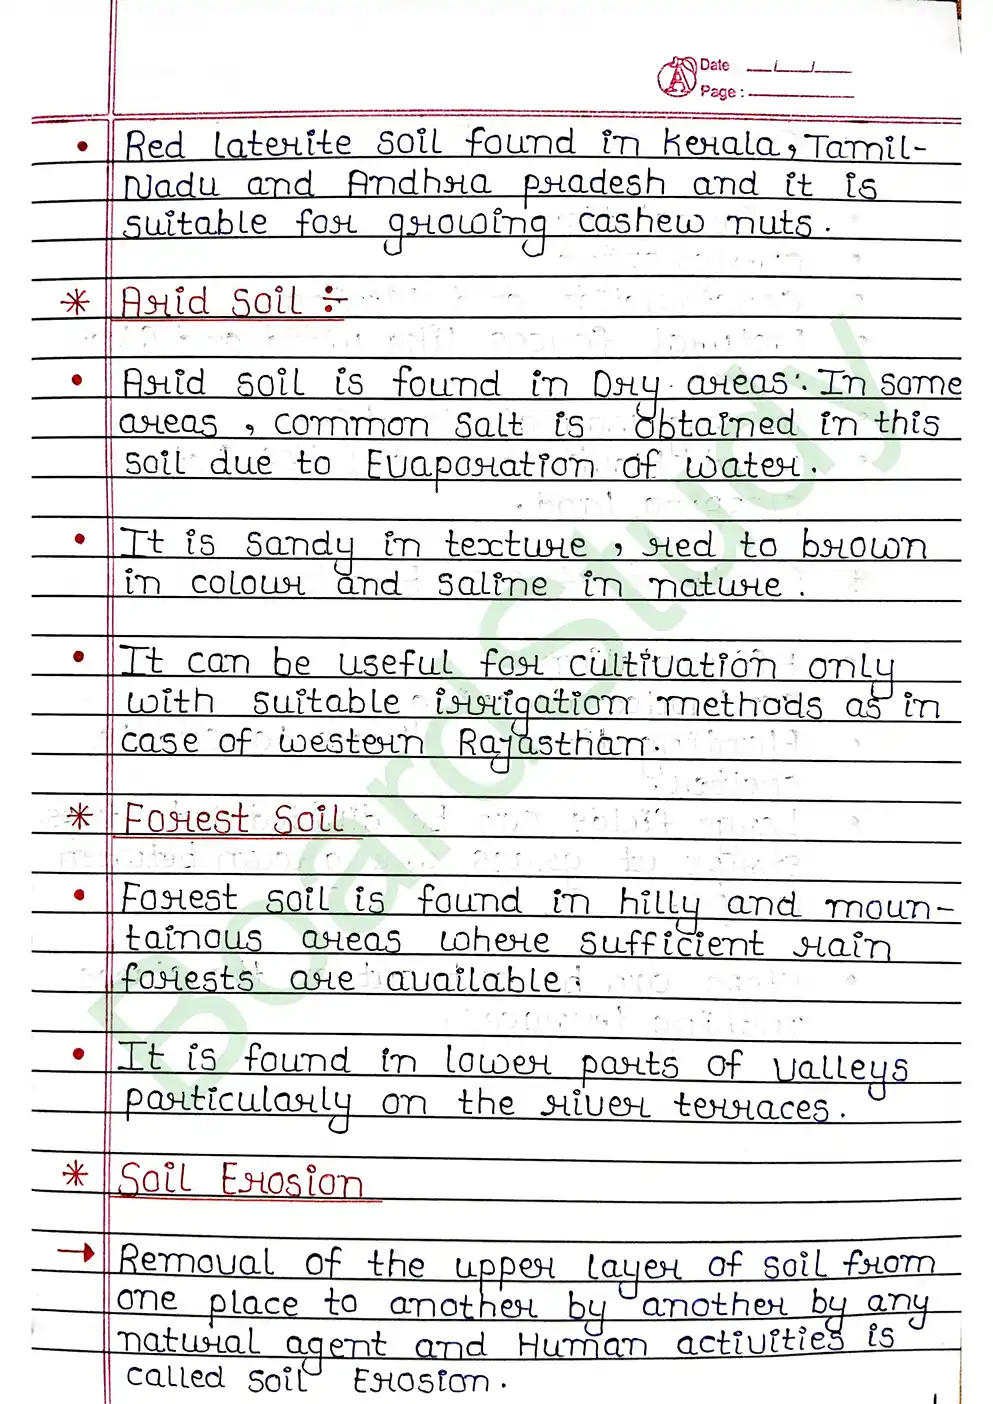 Date __/__/__
Page :
• Red laterite soil found in Kerala, Tamil-
Nadu and Andhra pradesh and it is
suitable for growing cashew nuts.
* Arid Soil ÷
• Arid soil is found in Dry areas. In some
areas, common salt is obtained in this
soil due to Evaporation of water.
• It is sandy in texture, red to brown
in colour and saline in nature.
• It can be useful for cultivation only
with suitable irrigation methods as in
case of western Rajasthan.
* Forest Soil
• Forest soil is found in hilly and moun-
tainous areas where sufficient rain
forests are available.
• It is found in lower parts of valleys
particularly on the river terraces.
* Soil Erosion
→ Removal of the upper layer of soil from
one place to another by another by any
natural agent and Human activities is
called soil Erosion.
BoardStudy